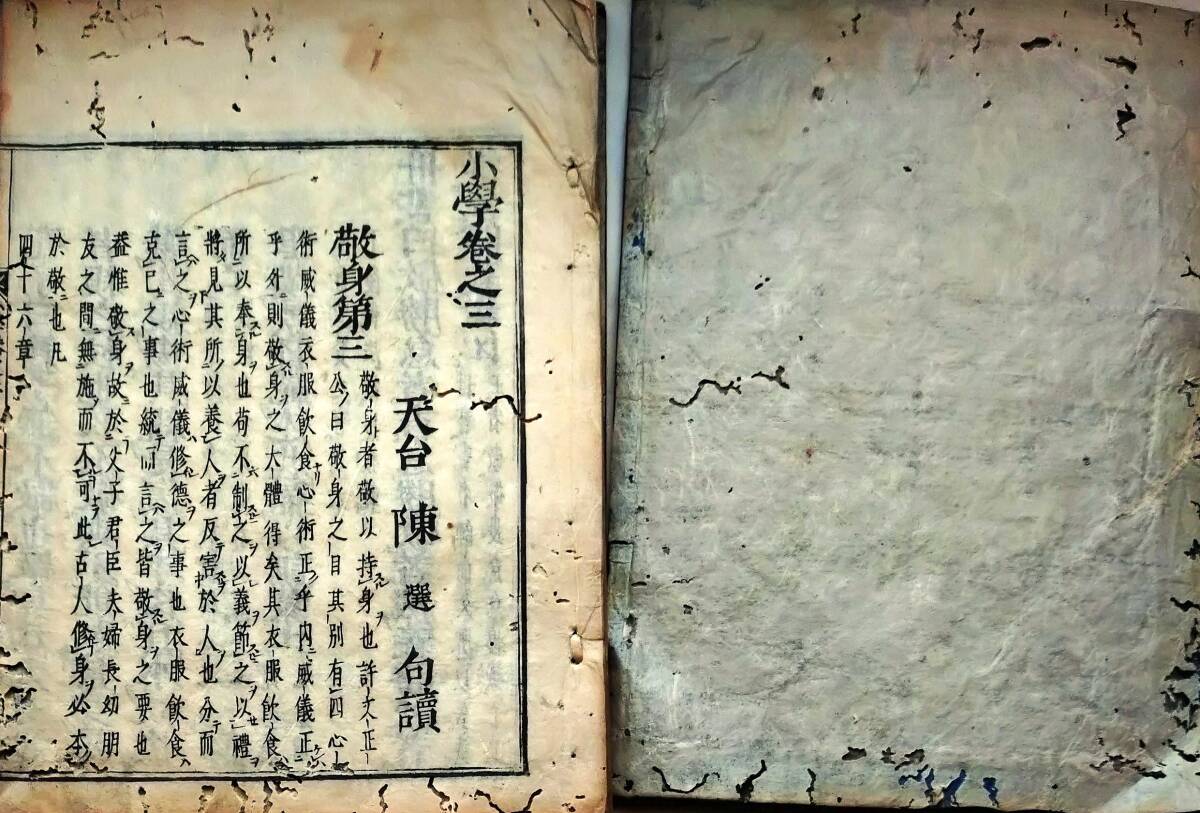 小學卷之三
天台 陳 選 句讀
敬身第三
敬身者敬以持身也許文正
公曰敬身之目其別有四心
術威儀衣服飲食心術正乎内威儀正
乎外則敬身之大體得矣其衣服飲食
所以奉身也苟不制之以義節之以禮
將見其所以養人者反害於人也分而
言之心術威儀修德之事也衣服飲食
克已之事也統而言之皆敬身之要也
蓋惟敬身故於父子君臣夫婦長幼朋
友之間無施而不可此古人修身必本
於敬也凡
四十六章